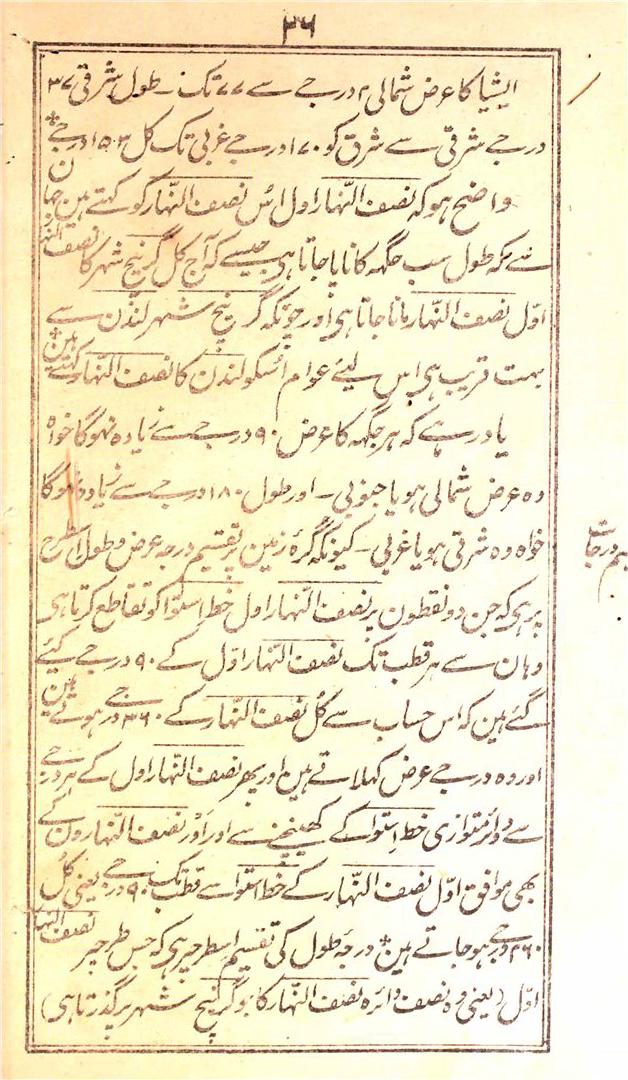 ۳۶
ایشیا کا عرض شمالی ۲ درجے سے ۷۷ تک ۔ طول شرقی ۳۷
درجے شرقی سے شرق کو ۱۷۰ درجے غربی تک کل ۱۵۳ درجے
واضح ہو کہ نصف النّہار اول اُس نصف النّہار کو کہتے ہین جہان
سے کہ طول سب جگہہ کا ناپا جاتا ہی جیسے کہ آج کل گرینچ شہر کا نصف النّہار
اوّل نصف النّہار مانا جاتا ہی اور چونکہ گرینچ شہر لنڈن سے
بہت قریب ہی اس لیئے عوام اُسکو لندن کا نصف النّہار کہتے ہین
یاد رہے کہ ہر جگہہ کا عرض ۹۰ درجے سے زیادہ نہوگا خواہ
وہ عرض شمالی ہو یا جنوبی ۔ اور طول ۱۸۰ درجے سے زیادہ نہوگا
خواہ وہ شرقی ہو یا غربی ۔ کیونکہ کُرۂ زمین پر تقسیم درجہ عرض و طول اسطرح
پر ہی کہ جن دو نقطون پر نصف النّہار اول خط استوا کو تقاطع کرتا ہی
وہان سے ہر قطب تک نصف النّہار اوّل کے ۹۰ درجے کیئے
گئے ہین کہ اس حساب سے کُل نصف النّہار کے ۳۶۰ درجے ہوتے ہین
اور وہ درجے عرض کہلاتے ہین اور پھر نصف النّہار اول کے ہر درجے
سے دوائر متوازی خط استوا کے کھینچنے سے اور اَوْر نصف النّہارون کے
بھی موافق اوّل نصف النّہار کے خط استوا سے قطب تک ۹۰ درجے یعنی کُل
۳۶۰ درجے ہو جاتے ہین درجۂ طول کی تقسیم اسطرحپر ہی کہ جس طرحپر نصف النّہار
اوّل (یعنی وہ نصف دائرہ نصف النّہار کا جو گرینچ شہر پر گذرتا ہی)